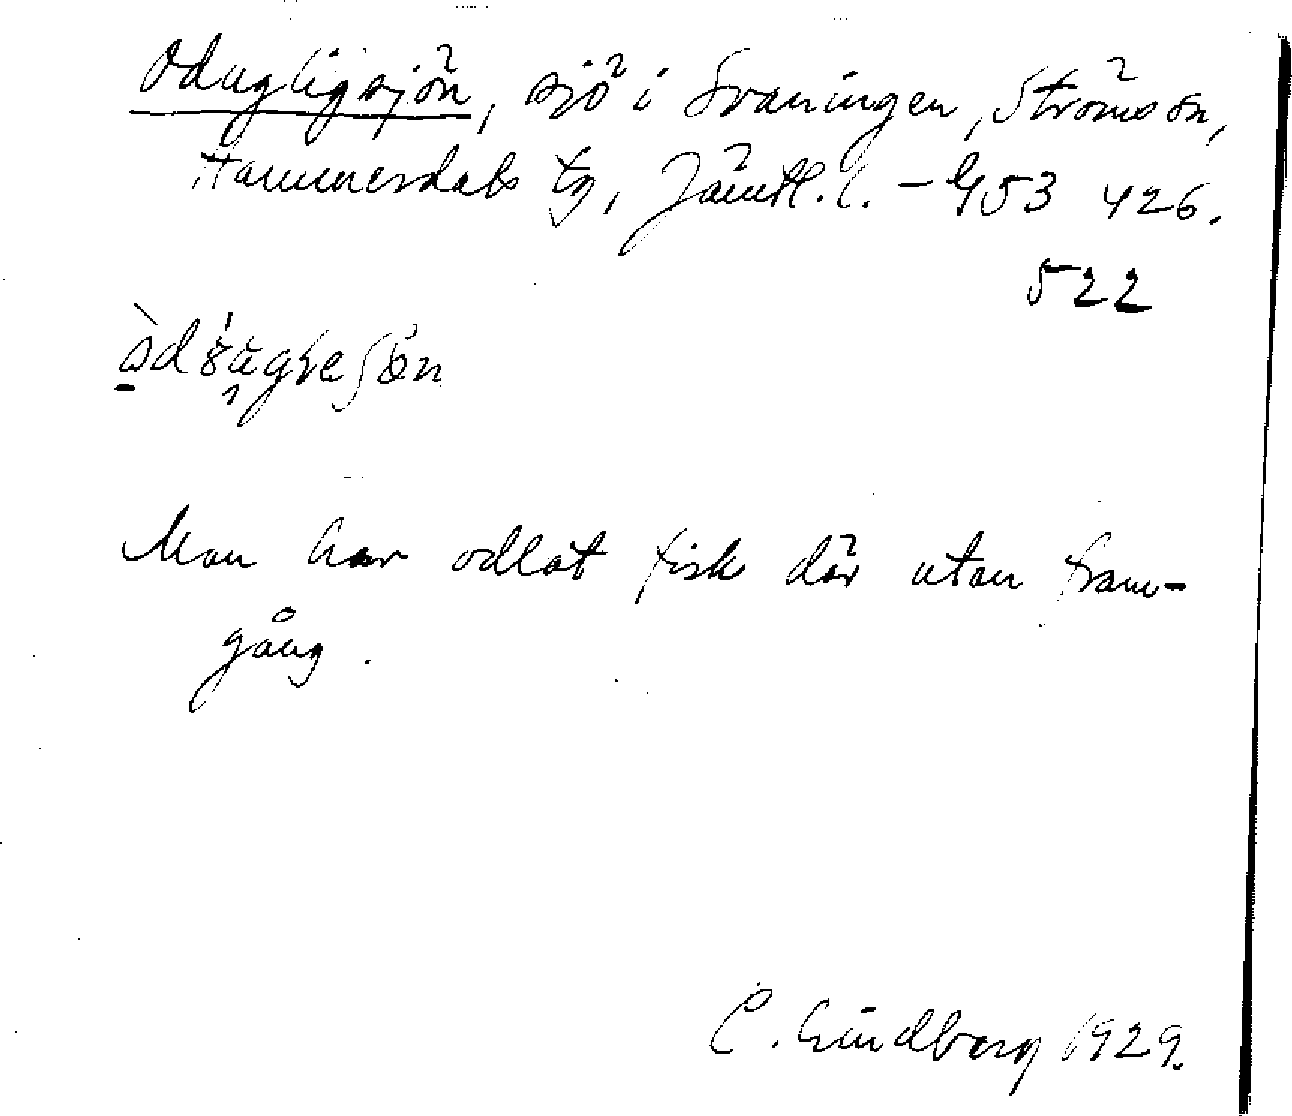 Odugligsjön, sjö i Svaningen, Ströms sn,
Hammerdals tg, Jämtl. l. – G53 426.
522
Man har odlat fisk där utan fram-
gång.
C. Lindberg 1929.